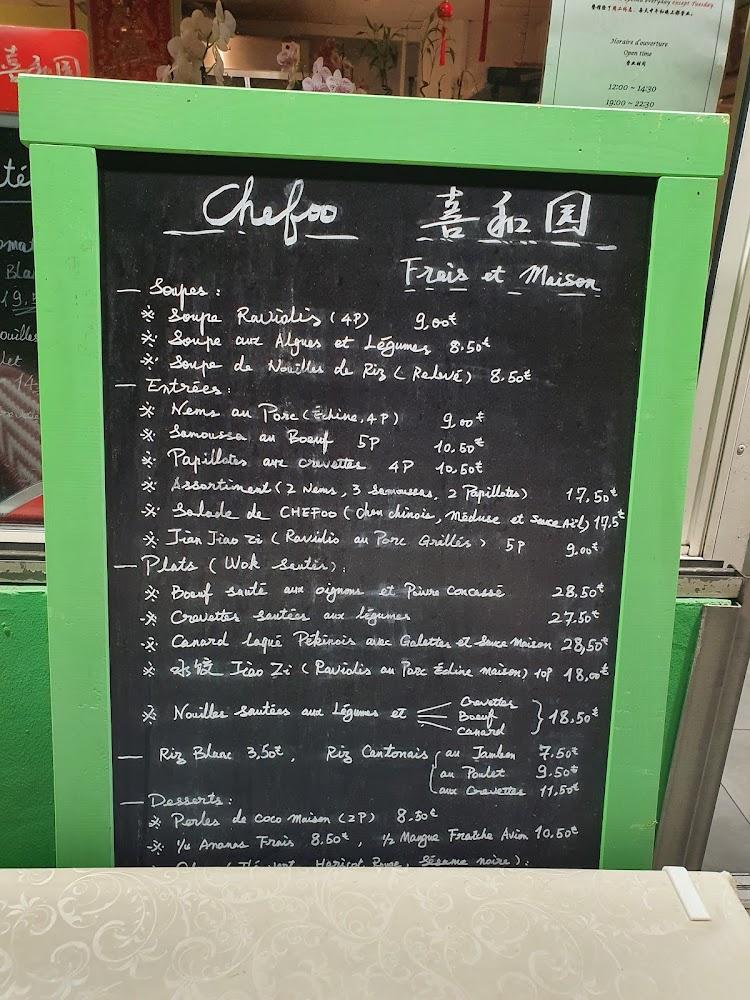 opened everyday except Tuesday
Horaire d'ouverture
Open time
营业时间
12:00 ~ 14:30
19:00 ~ 22:30
喜和园
Chefoo 喜和园
Frais et Maison
— Soupes :
※ Soupe Raviolis (4P) 9,00€
※ Soupe aux Algues et Légumes 8.50€
※ Soupe de Nouilles de Riz (Relevé) 8.50€
— Entrées :
※ Nems au Porc (Échine, 4P) 9,00€
※ Samoussa au Boeuf 5P 10,50€
※ Papillotes aux crevettes 4P 10,50€
※ Assortiment (2 Nems, 3 Samoussas, 2 Papillotes) 17,50€
※ Salade de CHEFOO (Chou chinois, Méduse et Sauce Ail) 17,5€
※ Jian Jiao Zi (Raviolis au Porc Grillés) 5P 9,00€
— Plats (Wok Sautés) :
※ Boeuf sauté aux oignons et Poivre Concassé 28,50€
※ Crevettes sautées aux légumes 27.50€
※ Canard laqué Pékinois avec Galettes et Sauce Maison 28,50€
※ 水饺 Jiao Zi (Raviolis au Porc Échine maison) 10P 18,00€
※ Nouilles sautées aux Légumes et Crevettes Boeuf Canard } 18,50€
— Riz Blanc 3,50€, Riz Cantonais au Jambon 7.50€
au Poulet 9.50€
aux Crevettes 11,50€
— Desserts :
※ Perles de coco Maison (2P) 8.50€
※ 1/4 Ananas Frais 8.50€, 1/2 Mangue Fraîche Avion 10,50€
(Thé vert, Haricot Rouge, Sésame noire) :